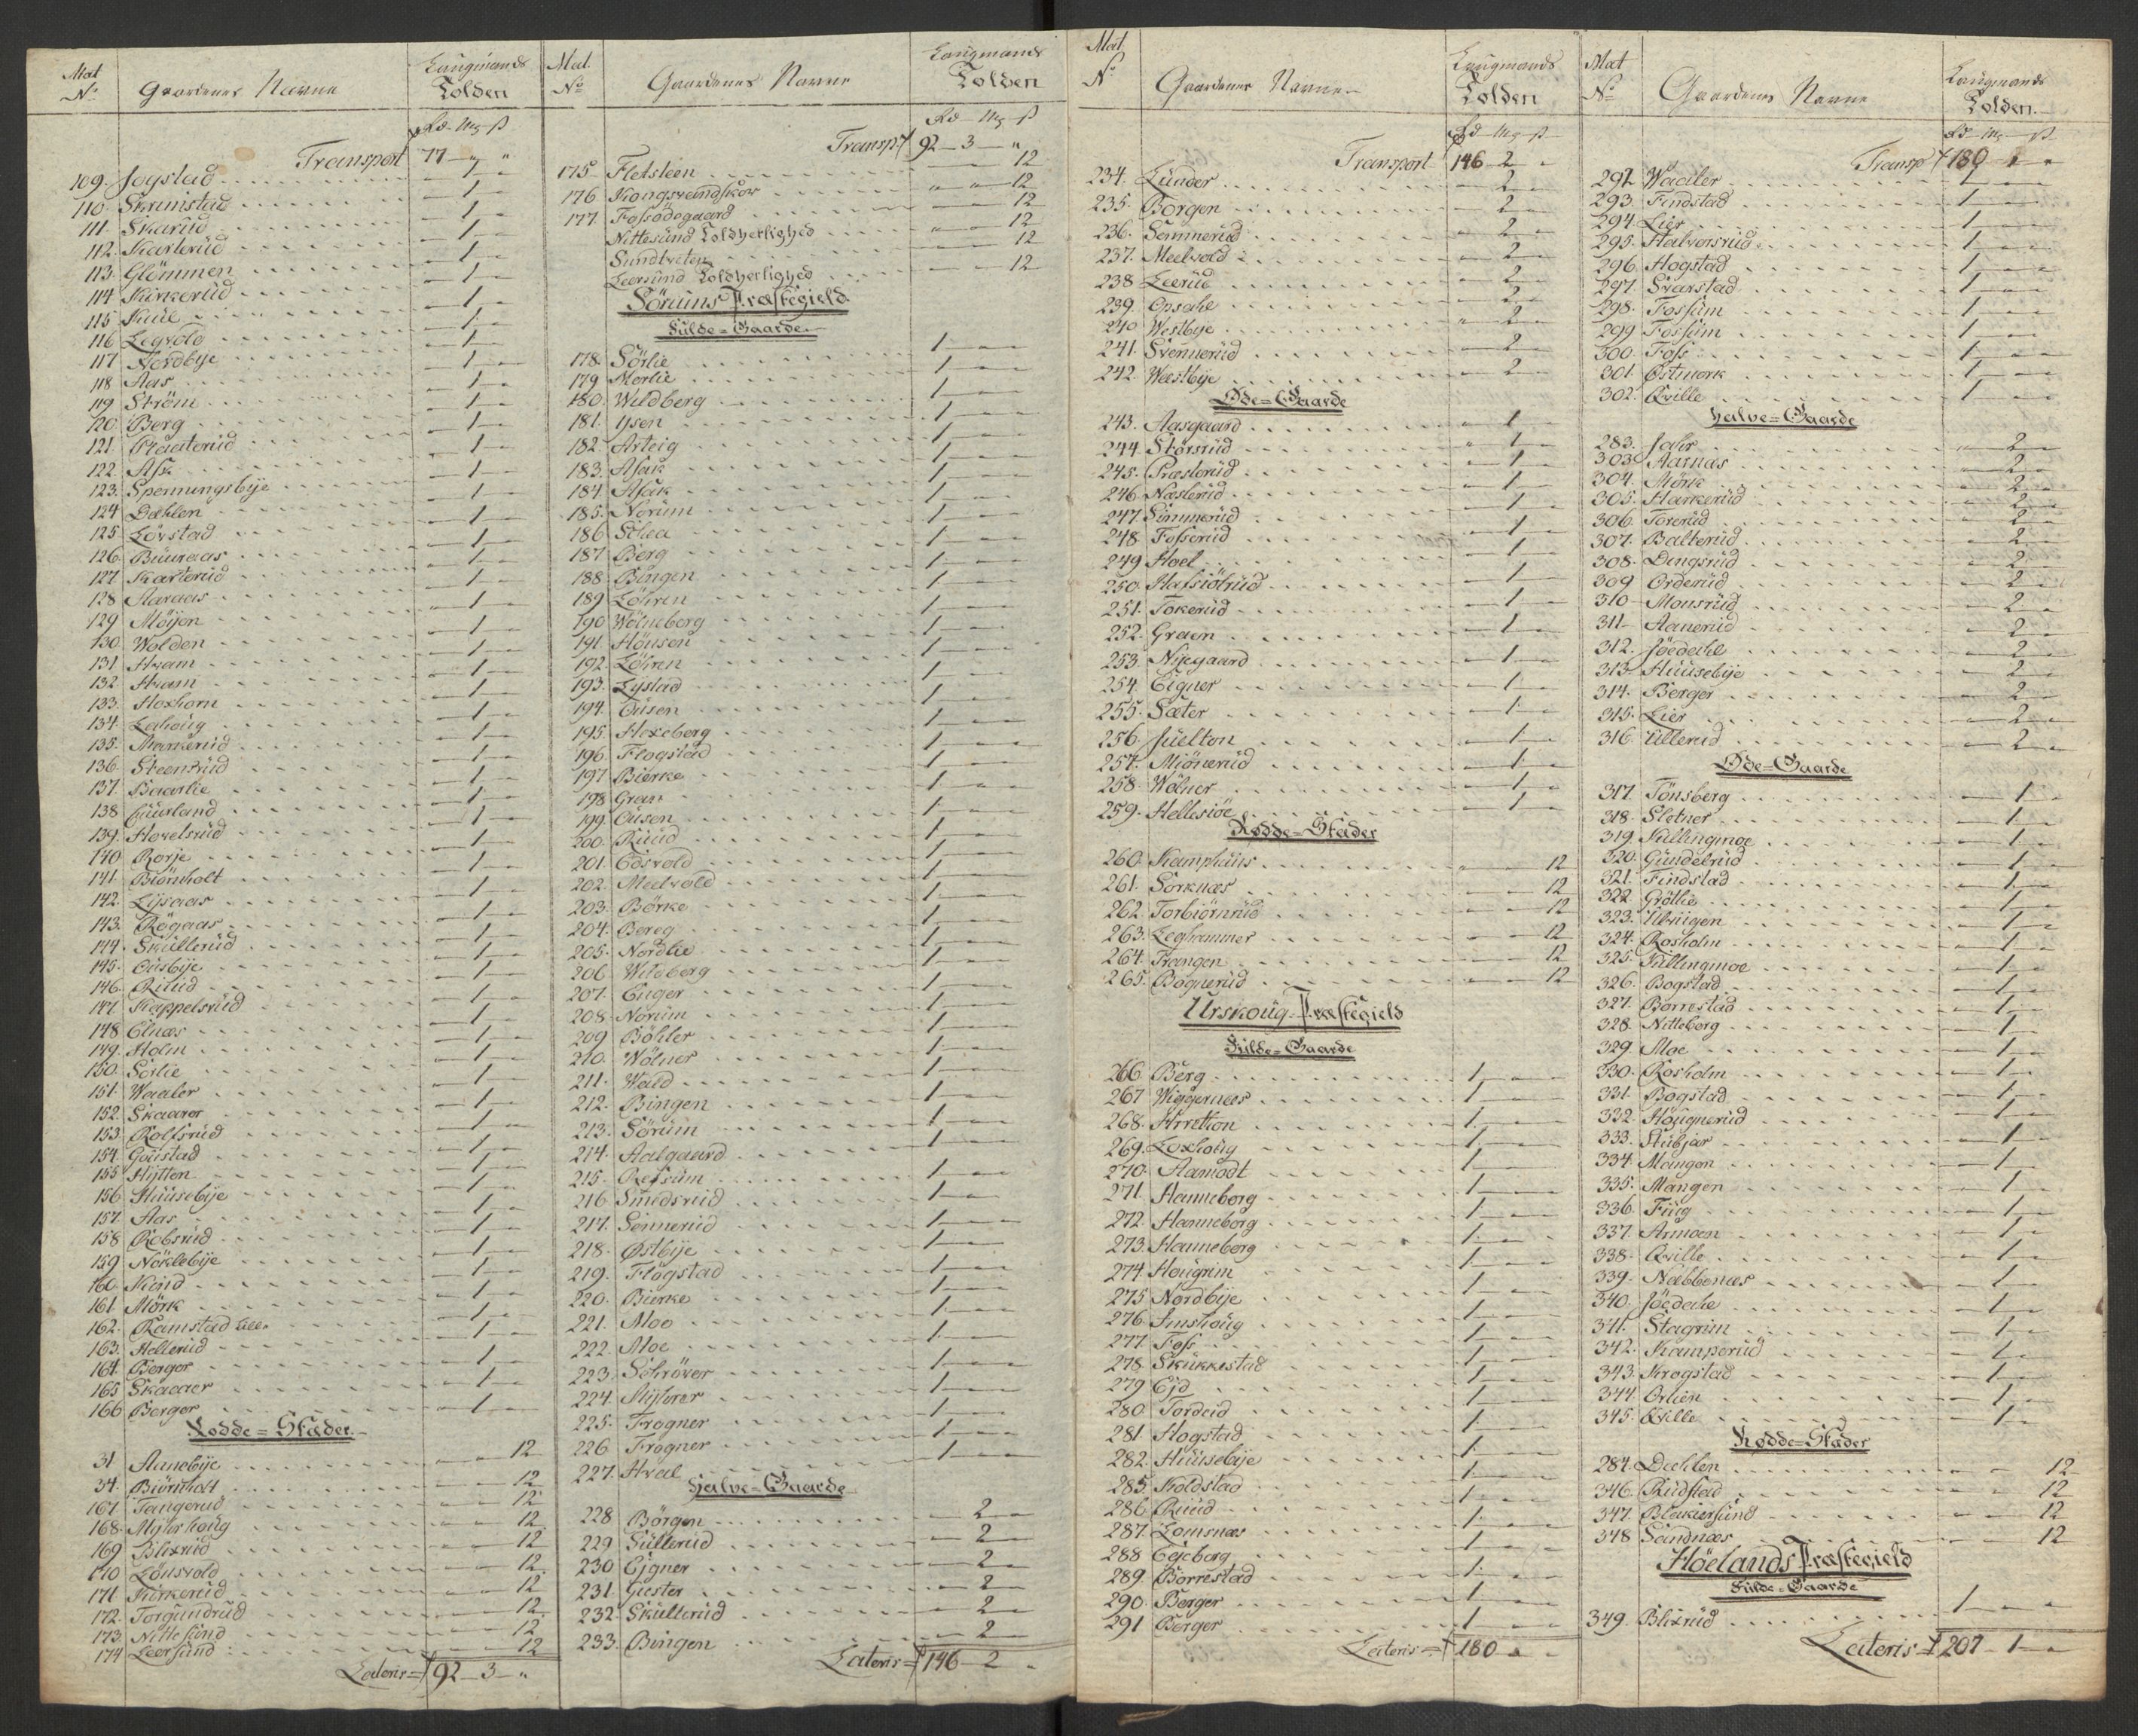 Mat
No Gaardenes Navne Laugmands
Tolden
Rd Mg ß
Transport 77 " "
109. Jogstad 1
110. Skrimstad 1
111. Skarüd 1
112. Karlerüd 1
113. Glömmen 1
114 Kirkerüd 1
115 Küül 1
116 Legvold 1
117 Nordbye 1
118 Aas 1
119 Ström 1
120 Berg 1
121. 1
122. Ask 1
123. Spenningsbÿe 1
124 Dahlen 1
125 Lövstad 1
126. Büüraas 1
127. Karterüd 1
128 Aaraas 1
129 Möÿen 1
130. Wolden 1
131. Hvam 1
132 Hvam 1
133. Hoxhorn 1
134 Lahoüg 1
135. Markerüd 1
136. Steensrüd 1
137. Baarlie 1
138 Güürland 1
139. Hovelsrüd 1
140 Rorje 1
141. Biörnholt 1
142. Lÿsaas 1
143. Rögaas 1
144. Sküllerüd 1
145. Oüsbÿe 1
146. Rüüd 1
147. Kappelsrüd 1
148 Elnæs 1
149. Holm 1
150. Sörlie 1
151. Waaler 1
152. Skaarer 1
153 Rolfsrüd 1
154 Goüstad 1
155 Hÿtten 1
156 Hüüsebÿe 1
157. Aas 1
158 Robsrüd 1
159 Nöklebÿe 1
160. Kind 1
161. Mörk 1
162. Ramstad 1
163. Hellerüd 1
164. Berger 1
165 Skaarer 1
166 Berger 1
Rodde=Stæder
31. Hanebÿe 12
34. Biörnholt 12
167 Tangerüd 12
168. Mÿhrhoüg 12
169 Blixrüd 12
170 Lönsvold 12
171. Kirkerüd 12
172. Torgündrüd 12
173. Nittesünd 12
174 Leersünd 12
Lateris 92 3 "
Mat.
No Gaardenes Navne Laugmands
Tolden
Rd Mg ß
Transpt 92 3 "
175 Fletsteen 12
176 Kongsrændskov 12
177. Fossödegaard 12
Nittesünd Toldherlighed 12
Sundtveten 12
Leersund Toldherlighed 12
Sörums Præstegield
Fülde=Gaarde
178. Sörlie 1
179 Morlie 1
180. Wildberg 1
181. Ysen 1
182 Arteig 1
183. Asak 1
184. Asak 1
185. Norum 1
186 Schea 1
187 Berg 1
188. Bingen 1
189 Löhren 1
190 Wölneberg 1
191. Hönsen 1
192. Löhren 1
193. Lystad 1
194. Oüsen 1
195 Hexeberg 1
196. Flogstad 1
197. Bierke 1
198 Gran 1
199. Oüsen 1
200. Rüüd 1
201. Edsvold 1
202. Meelvold 1
203. Börke 1
204. Bereg 1
205. Nordlie 1
206 Wildberg 1
207. Enger 1
208. Norum 1
209 Böhler 1
210. Wölner 1
211. Wæld 1
212. Bingen 1
213. Sörüm 1
214. Aalgaard 1
215. Refsüm 1
216. Smedsrüd 1
217. Sennerüd 1
218. Østbÿe 1
219. Flogstad 1
220. Bierke 1
221. Moe 1
222. Moe 1
223 Schröver 1
224. Mÿhrer 1
225. Frogner 1
226 Frogner 1
227. Hval 1
Halve=Gaarde
228 Börgen 2
229 Süllerüd 2
230 Ejgner 2
231. Giester 2
232 Sküllerüd 2
233. Bingen 2
Lateris 146 2 "
Mat
No Gaardenes Navne Laugmands
Tolden
Rd Mg ß
Transport 146 2 "
234. Lünder 2
235. Borgen 2
236. Semmerüd 2
237. Meelvold 2
238 Leerüd 2
239. Opsahl 2
240 Westbÿe 2
241. Svennerüd 2
242. Westbÿe 2
Øde=Gaarde
243. Aasgaard 1
244. Störsrüd 1
245. Præsterüd 1
246 Næsterüd 1
247. Simmerüd 1
248 Fosserüd 1
249 Hoel 1
250. Hafsiölrüd 1
251. Tokerüd 1
252. Graen 1
253. Nÿegaard 1
254. Eigner 1
255. Sæter 1
256. Jüelton 1
257. Miönerüd 1
258. Wölner 1
259. Hellesiöe 1
Rodde=Stæder
260. Kamphüüs 12
261. Sorknæs 12
262. Torbiörnrüd 12
263. Leghammer 12
264. Trangen 12
265. Bognerüd 12
Urskoüg Præstegield
Fülde=Gaarde
266. Berg 1
267 Wiggernæs 1
268. Hvretion 1
269. Loxhoüg 1
270. Aamodt 1
271. Hanneborg 1
272. Hanneborg 1
273. Hanneborg 1
274 Hougrim 1
275 Nordbÿe 1
276. Imshoüg 1
277. Foss 1
278 Skükkestad 1
279 Ejd 1
280 Tordeid 1
281 Hogstad 1
282. Hüüsebÿe 1
285. Koldstad 1
286 Rüüd 1
287. Lomsnæs 1
288 Eÿeberg 1
289. Borrestad 1
290. Berger 1
291 Berger 1
Lateris 180 " "
Mat
No Gaardenes Navne Laugmands
Tolden
Rd Mg ß
Transpt 180 " "
292. Waaler 1
293. Findstad 1
294. Lier 1
295. Halvorsrüd 1
296. Hogstad 1
297. Svarstad 1
298. Fossüm 1
299 Fossüm 1
300. Foss 1
301. Østmork 1
302. Qville 1
Halve=Gaarde
283. Jahr 2
303. Aarnæs 2
304. Mörk 2
305. Harkerüd 2
306. Torerüd 2
307. Balterüd 2
308. Dingsrüd 2
309 Orderüd 2
310 Monsrüd 2
311 Aanerüd 2
312. Jöedahl 2
313. Hüüsebÿe 2
314. Berger 2
315. Lier 2
316. Ullerüd 2
Øde=Gaarde
317. Tönsberg 1
318. Sletner 1
319. Küllingmoe 1
320. Gündelrüd 1
321. Findstad 1
322. Gröttie 1
323. 1
324. Rosholm 1
325. Küllingmoe 1
326. Bogstad 1
327. Borrestad 1
328. Nitteberg 1
329. Moe 1
330. Rosholm 1
331. Bogstad 1
332. Höügnerüd 1
333. Stübjar 1
334. Mangen 1
335. Mangen 1
336. Füüg 1
337. Armoen 1
338. Qville 1
339. Nabbenæs 1
340. Jöedahl 1
341. Stagrim 1
342. Kamperüd 1
343. Krogstad 1
344. Orlien 1
345. Qville 1
Rodde=Stæder
284. Dæhlen 12
346. Rüdstad 12
347. Blakiersünd 12
348 Sandnæs 12
Höelands Præstegield
Fülde=Gaarde
349. Blixrüd 1
Lateris 207 1 "